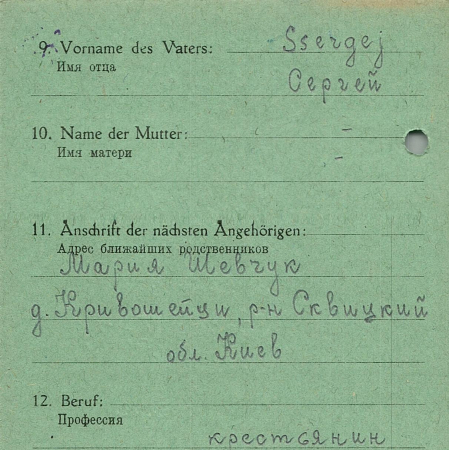 9. Vorname des Vaters: Ssergej
Имя отца Сергей
10. Name der Mutter: -
Имя матери -
11. Anschrift der nächsten Angehörigen:
Адрес ближайших родственников
Мария Шевчук
д. Кривошеици, р-н Сквицкий
обл. Киев
12. Beruf:
Профессия
крестьянин